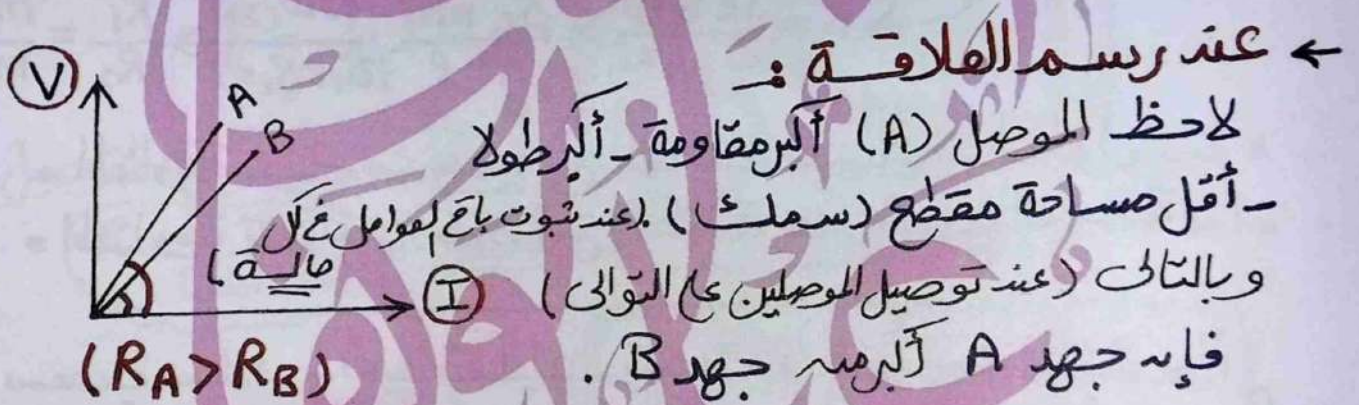 ← عند رسم العلاقة :
لاحظ الموصل (A) أكبر مقاومة - أكبر طولا
- أقل مساحة مقطع (سمك) . (عند ثبوت باقى العوامل فى كل
حالة)
وبالتالى (عند توصيل الموصلين على التوالى)
فإن جهد A أكبر من جهد B .
V
A
B
I
(RA > RB)